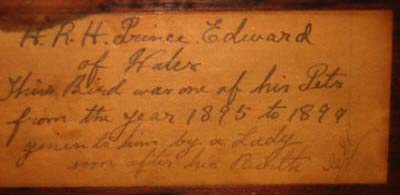 H. R. H. Prince Edward
of Wales
This Bird was one of his Pets
from the year 1895 to 1897
given to him by a Lady
soon after his Birth